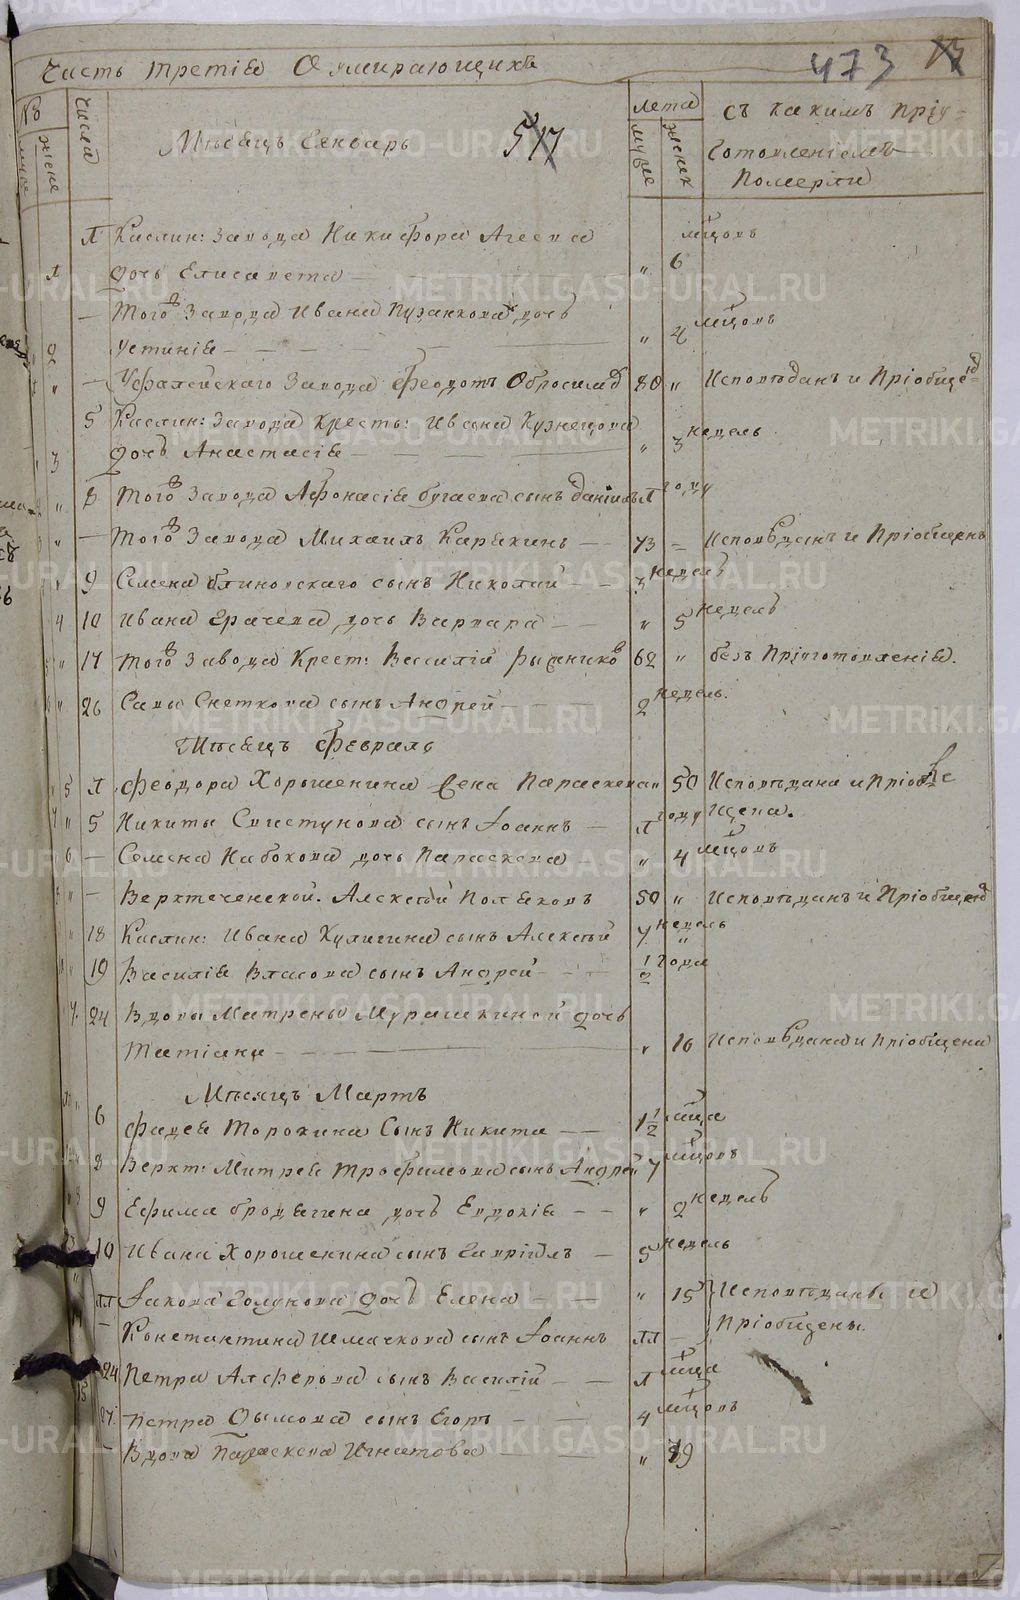 Часть третія О умирающихъ 473
№ Числа Мѣсяцъ Генварь лета съ какимъ пріу-
муже женс муже женск готовленіемъ
померли
1 Каслин: завода Никифора Агеева мцовъ
1 дочь Елисавета — " 6
— Того завода Ивана Пузанкова дочь мцовъ
2 Устинія — " 4
" — Уфалейскаго завода Феодотъ 80 " Исповѣданъ и Пріобще
5 Каслин: завода крестья: Ивана Кузнецова недель
3 дочь Анастасія — " 3
" 8 Того завода Афонасія Бугаева сынъ Даніилъ 1 году
" — Того завода Михаилъ Карякинъ — 73 — Исповѣданъ и Пріобщенъ
" 9 Семена Блиновскаго сынъ Николай — 3 недель
4 10 Ивана Грачева дочь Варвара — " 5 недель
" 17 Того завода Крест: Василій 62 " безъ Пріуготовленія.
" 26 Савы Снеткова сынъ Андрей — 2 недель.
Мѣсяцъ Февраль
5 1 Феодора Хорошенина жена Параскева " 50 Исповѣдана и Пріоб
" 5 Никиты Свистунова сынъ Іоаннъ — 1 году щена.
6 — Семена Набокова дочь Параскева — " 4 мцовъ
" — Верхтеченской. Алексѣй Поляковъ 50 " Исповѣданъ и Пріобщенъ
" 18 Каслин: Ивана Кулигина сынъ Алексѣй 7 недель "
" 19 Василія Власова сынъ Андрей — 1/2 года
7. 24 Вдовы Матрены Мурашкиной дочь
Татіана — " 16 Исповѣдана и Пріобщена
Мѣсяцъ Мартъ
6 Фадея Торокина сынъ Никита — 1 1/2 мца
8 Верхт: Митрея Трофимова сынъ Андрей 7 мцовъ
9 Ефима Бродягина дочь Евдокія — " 2 недель
10 Ивана Хорошенина сынъ Гавріилъ — 5 недель
11 Іакова Голунова дочь Елена — " 15 Исповѣданы и
— Константина Шмачкова сынъ Іоаннъ 11 — Пріобщены.
24 Петра Алферова сынъ Василій — 1 мца
27. Петра Сынъ Егоръ — 4 мцовъ
— Вдова Параскева Игнатова — " 89
METRIKI.GASO-URAL.RU